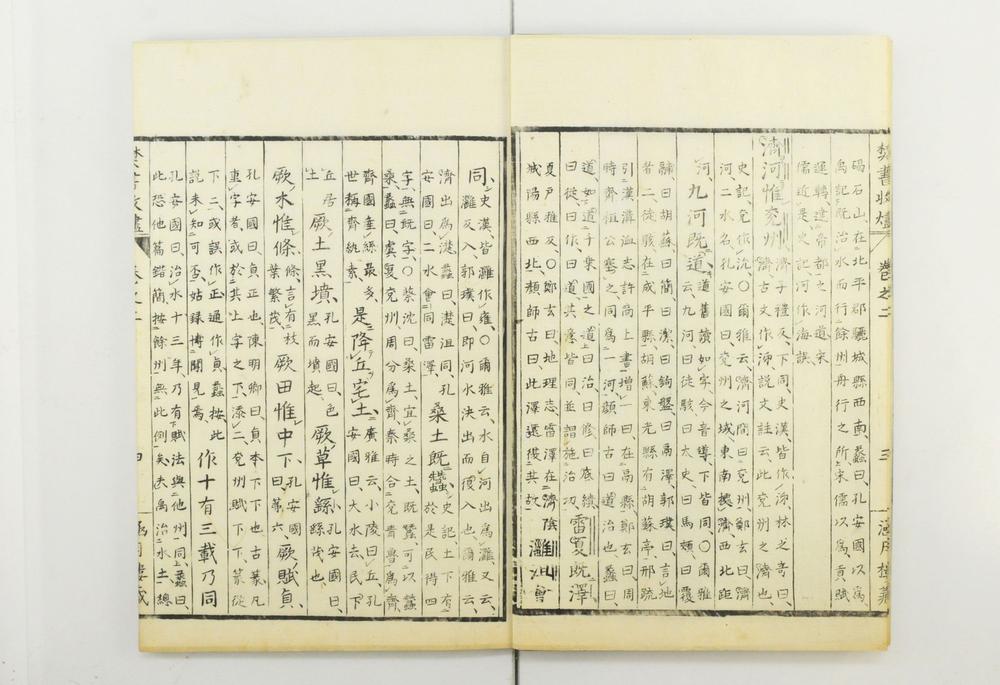 碣石山、在北平郡驪城縣西南、蠡曰、孔安國以爲
禹記既治水而行餘州舟行之所、宋儒以爲貢賦
運轉達帝都之河道、宋
儒近是、史記河作海誤、
濟河惟兗州、濟子禮反、下同、史漢皆作泲、林之奇曰、
濟、古文作泲、説文註云、此兗州之濟也、
史記、兗作沇、〇爾雅云、濟河間曰兗州、鄭玄曰、濟
河二水名、孔安國曰、兗州之域、東南據濟、西北距
河、九河既道、道舊讀如字、今音導、下皆同、〇爾雅
云、九河曰徒駭、曰大史、曰馬頰、曰覆
鬴、曰胡蘇、曰簡、曰潔、曰鉤盤、曰鬲津、郭璞曰、言地
者二、徒駭在成平縣、胡蘇東光縣有胡蘇亭、邢疏
引漢溝洫志許商上書、增一曰、在鬲縣、鄭玄曰、周
時齊桓公同爲一河、顏師古曰、道治也、蠡曰、
道如道千乘國之道、曰治、曰修、曰底績、
曰從、曰作、曰道、其意皆同、並謂施治功、雷夏既澤、
夏戸雅反、〇玄曰、地理志、雷澤在濟陰
城陽縣西北、顏師古曰、此澤還復其故、灉沮會
同、史漢、皆灉作雍、〇爾雅云、水自河出爲灉、又云、
灉反入、郭璞曰、即河水決出而復入也、爾雅云、
濟出爲濋、蠡曰、濋沮同、孔
安國曰、二水會同雷澤、桑土既蠶、史記土下有於是民得四
字、無既字、〇蔡沈曰、桑土、宜桑之土、既蠶可以蠶
桑、蠡曰、虞夏兗州、周分爲齊、秦時合兗青專爲齊、
齊國產絲最多、
世稱齊紈素、是降丘宅土、廣雅云、小陵曰丘、孔
安國曰、大水去、民下
丘居
土、厥土黑墳、孔安國曰、色
黑而墳起、厥草惟繇、孔安國曰、
繇茂也、
厥木惟條、條、言有枝
葉繁茂、厥田惟中下、孔安國
曰、第六、厥賦貞、
孔安國曰、貞正也、陳明卿曰、貞本下下也、古篆凡
重字者、或於其上字之下、添二、兗州賦下下、篆從
下二、或誤作正、通作貞、蠡按、此
説未知可否、姑録博聞見焉、作十有三載乃同
孔安國曰、治水十三年、乃有賦法、與他州同、上蠡曰、
此恐他篇錯簡、按餘州無此例矣、夫禹治水土、總
卷之二
三
四